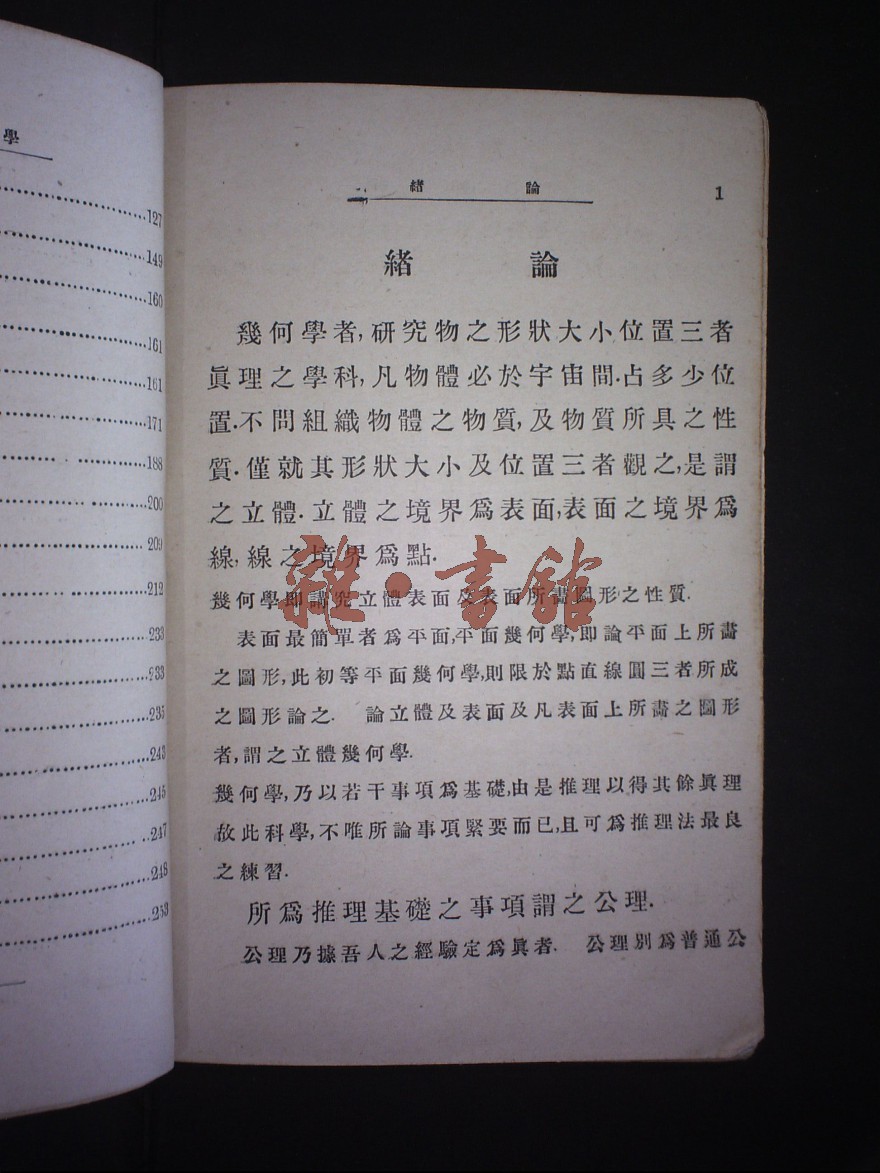 學
127
149
160
161
161
171
188
200
209
212
233
233
235
243
245
247
248
253
緒 論 1
緒 論
幾何學者,研究物之形狀大小位置三者
眞理之學科,凡物體必於宇宙間.占多少位
置.不問組織物體之物質,及物質所具之性
質.僅就其形狀大小及位置三者觀之,是謂
之立體.立體之境界爲表面,表面之境界爲
線,線之境界爲點.
幾何學卽講究立體表面及表面所畵圖形之性質.
表面最簡單者爲平面,平面幾何學,卽論平面上所畵
之圖形,此初等平面幾何學,則限於點直線圓三者所成
之圖形論之. 論立體及表面及凡表面上所畵之圖形
者,謂之立體幾何學.
幾何學,乃以若干事項爲基礎,由是推理以得其餘眞理
故此科學,不唯所論事項緊要而已,且可爲推理法最良
之練習.
所爲推理基礎之事項謂之公理.
公理乃據吾人之經驗定爲眞者. 公理別爲普通公
雜·書館